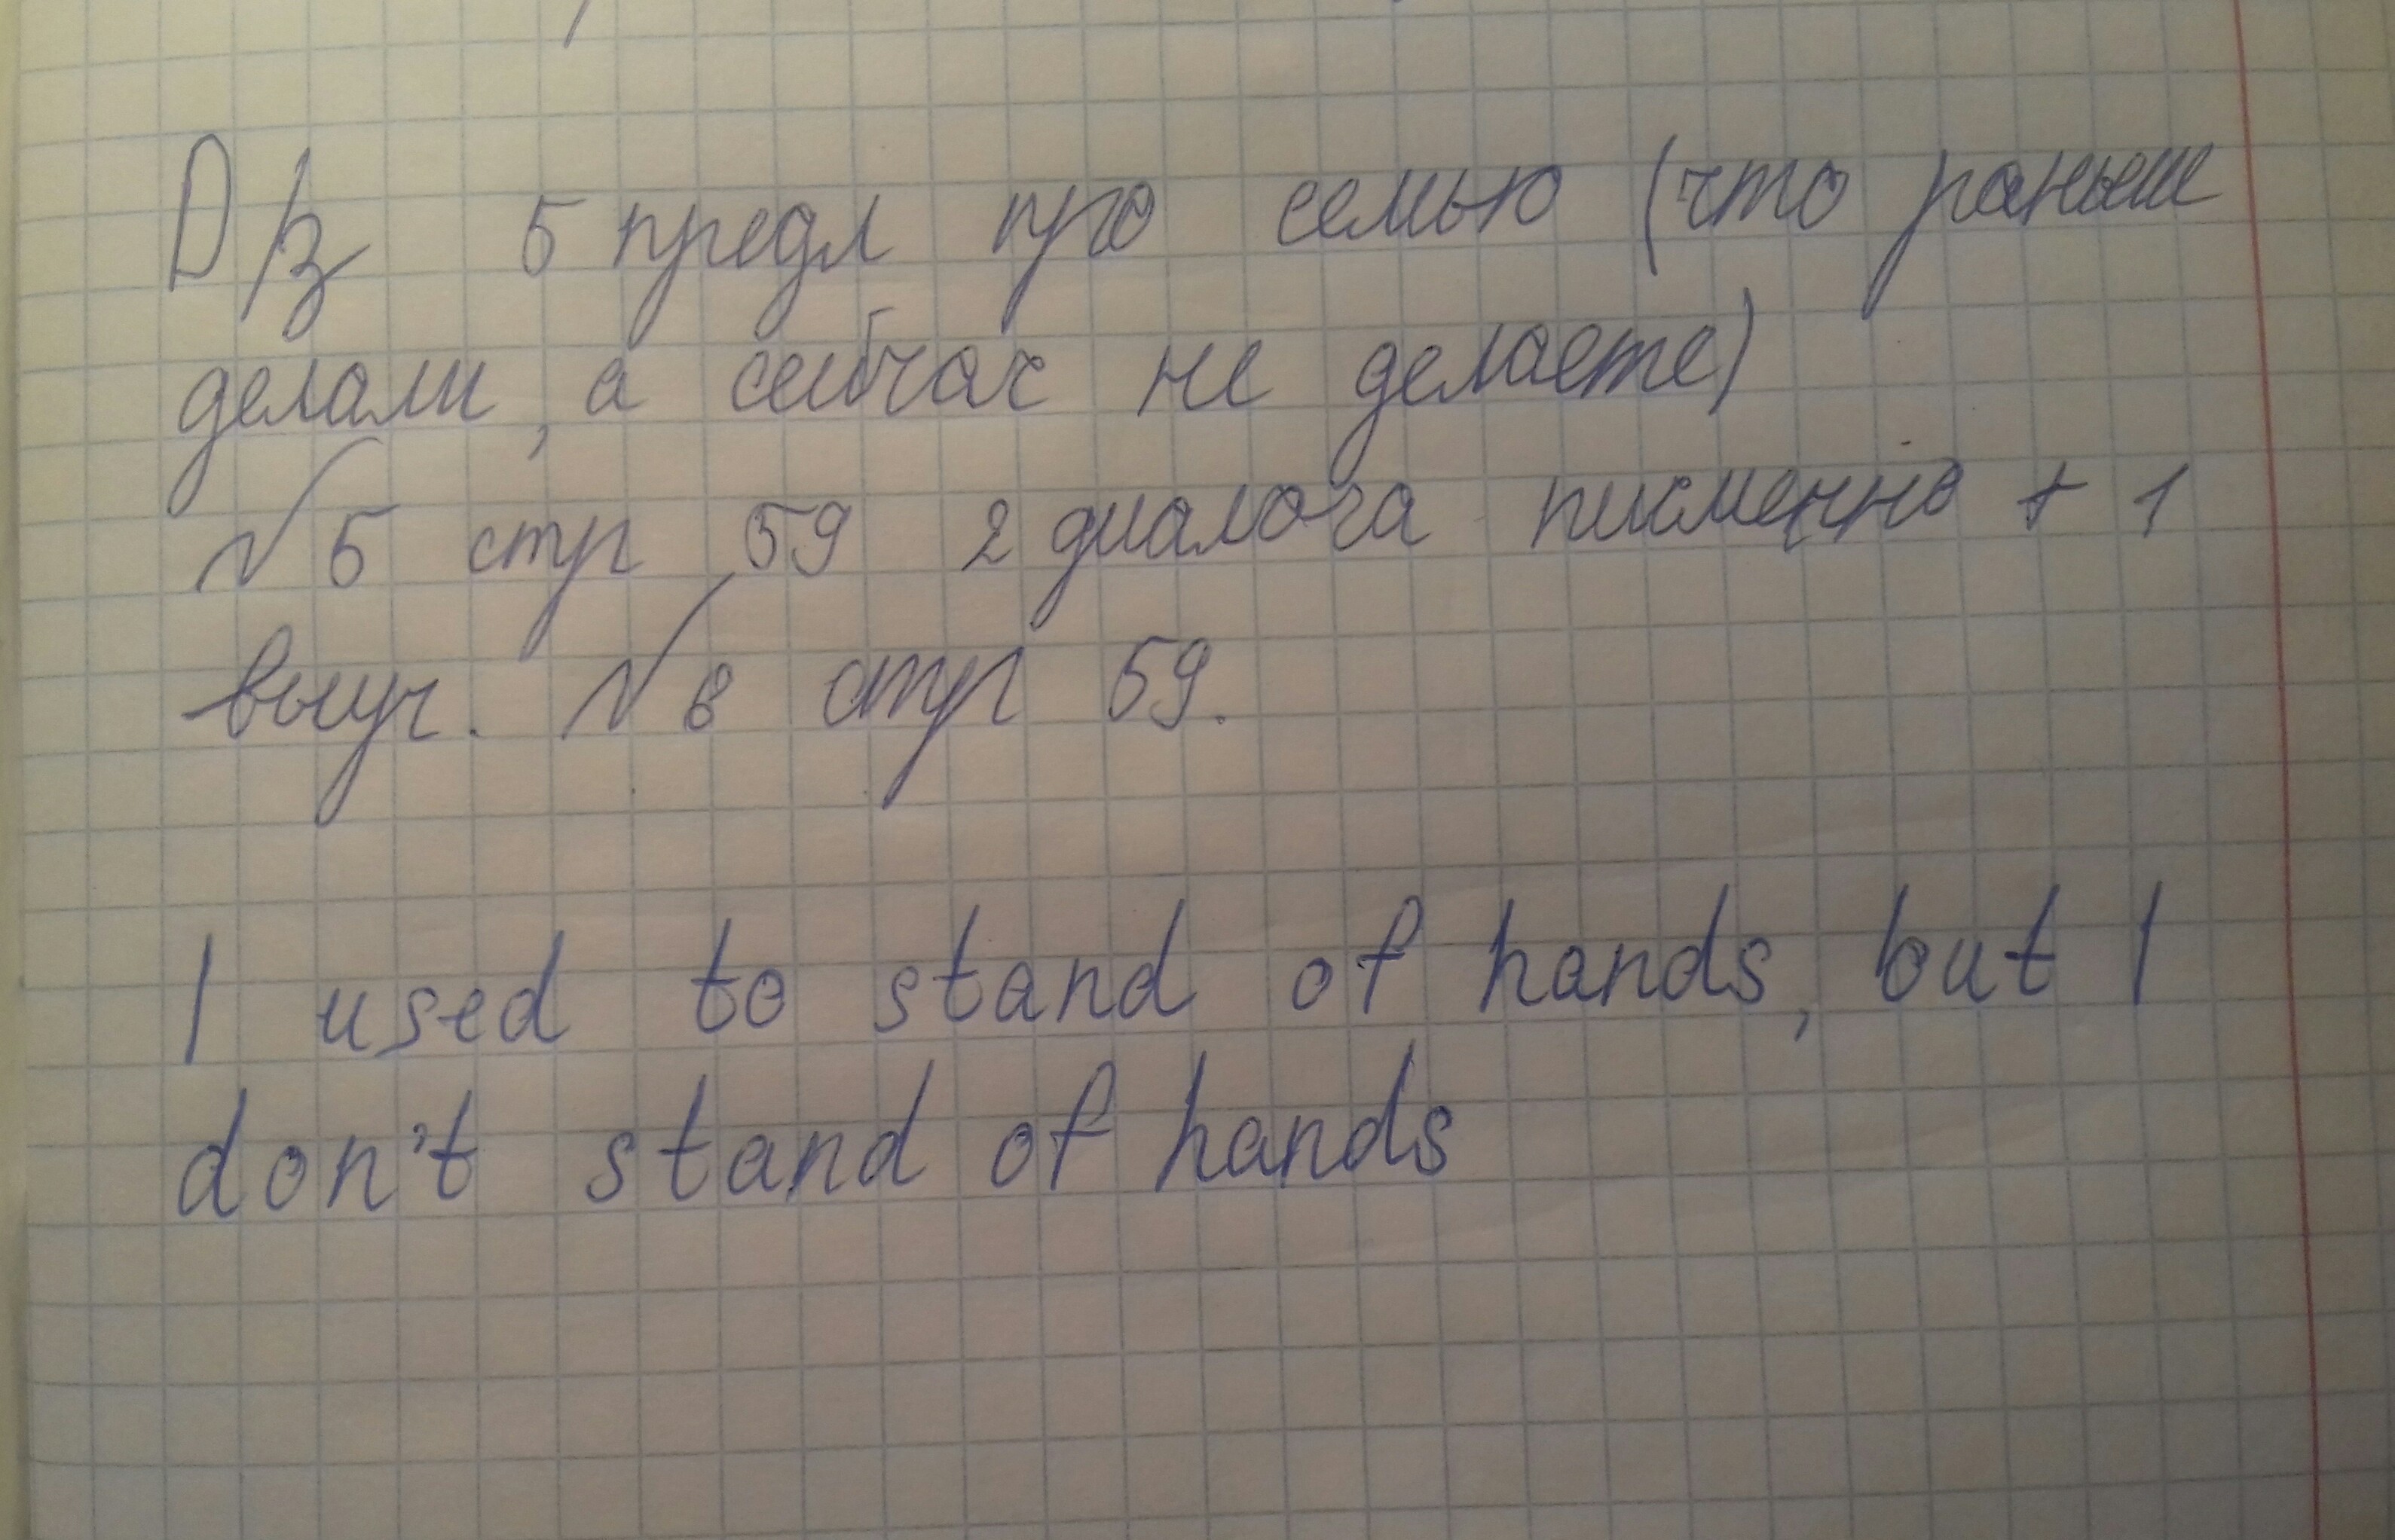 D/з 5 предл про семью (что раньше
делали, а сейчас не делаете)
№5 стр 59 2 диалога писменно + 1
выуч. №8 стр 59.
I used to stand of hands, but I
don't stand of hands